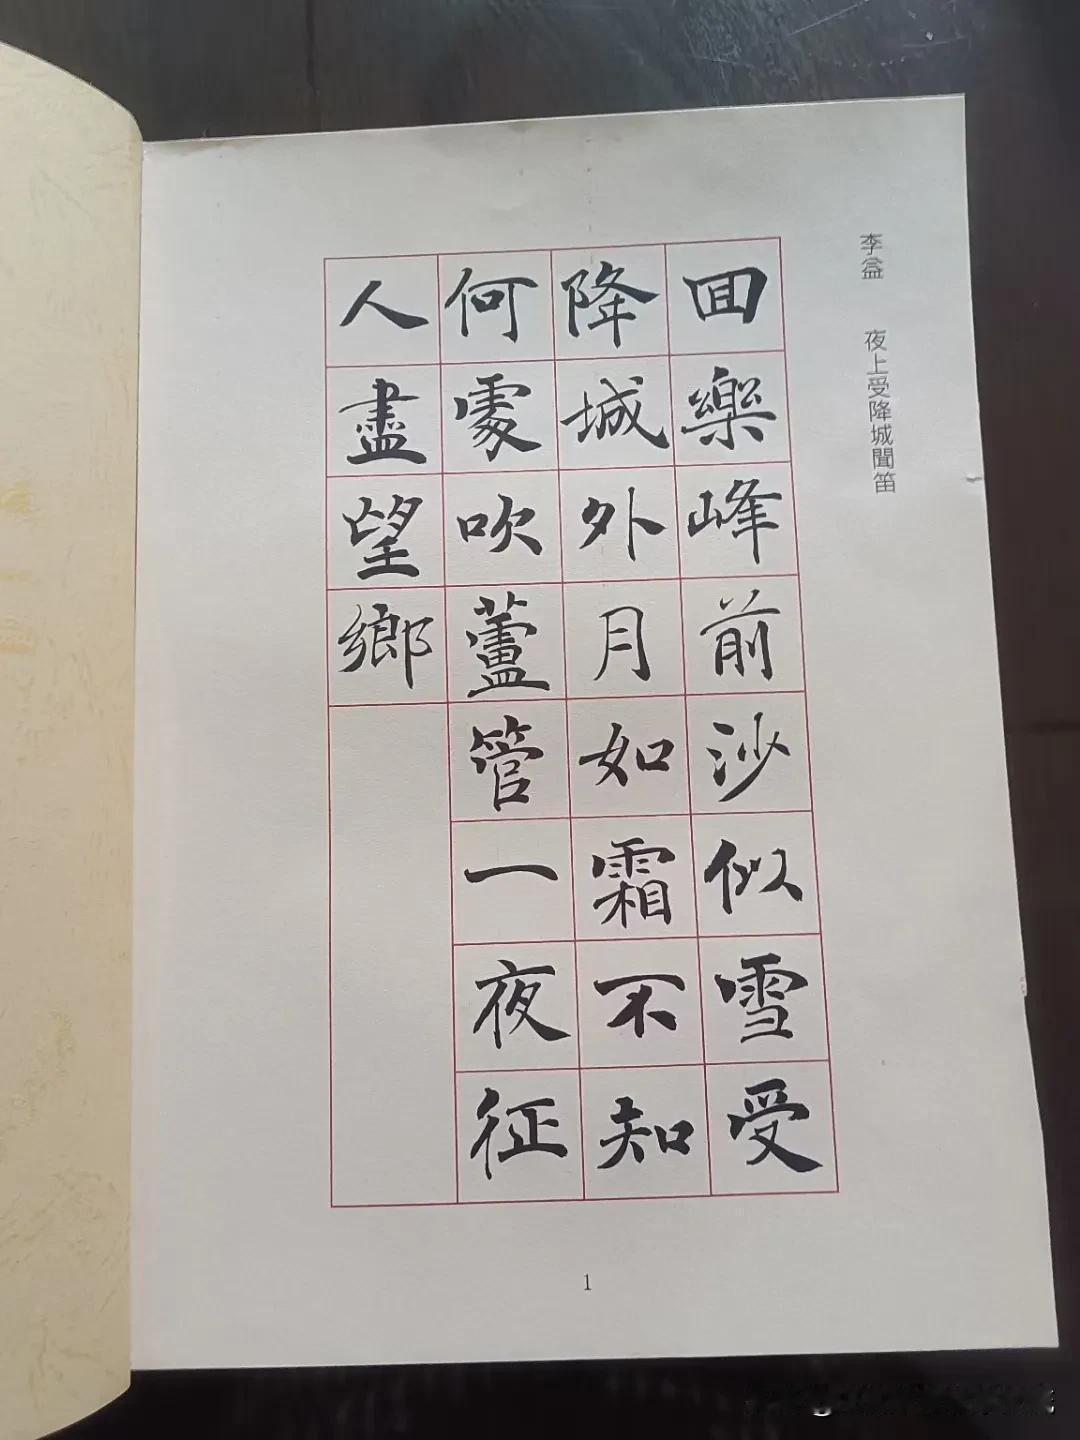 李益 夜上受降城聞笛
回樂峰前沙似雪受
降城外月如霜不知
何處吹蘆管一夜征
人盡望鄉
1